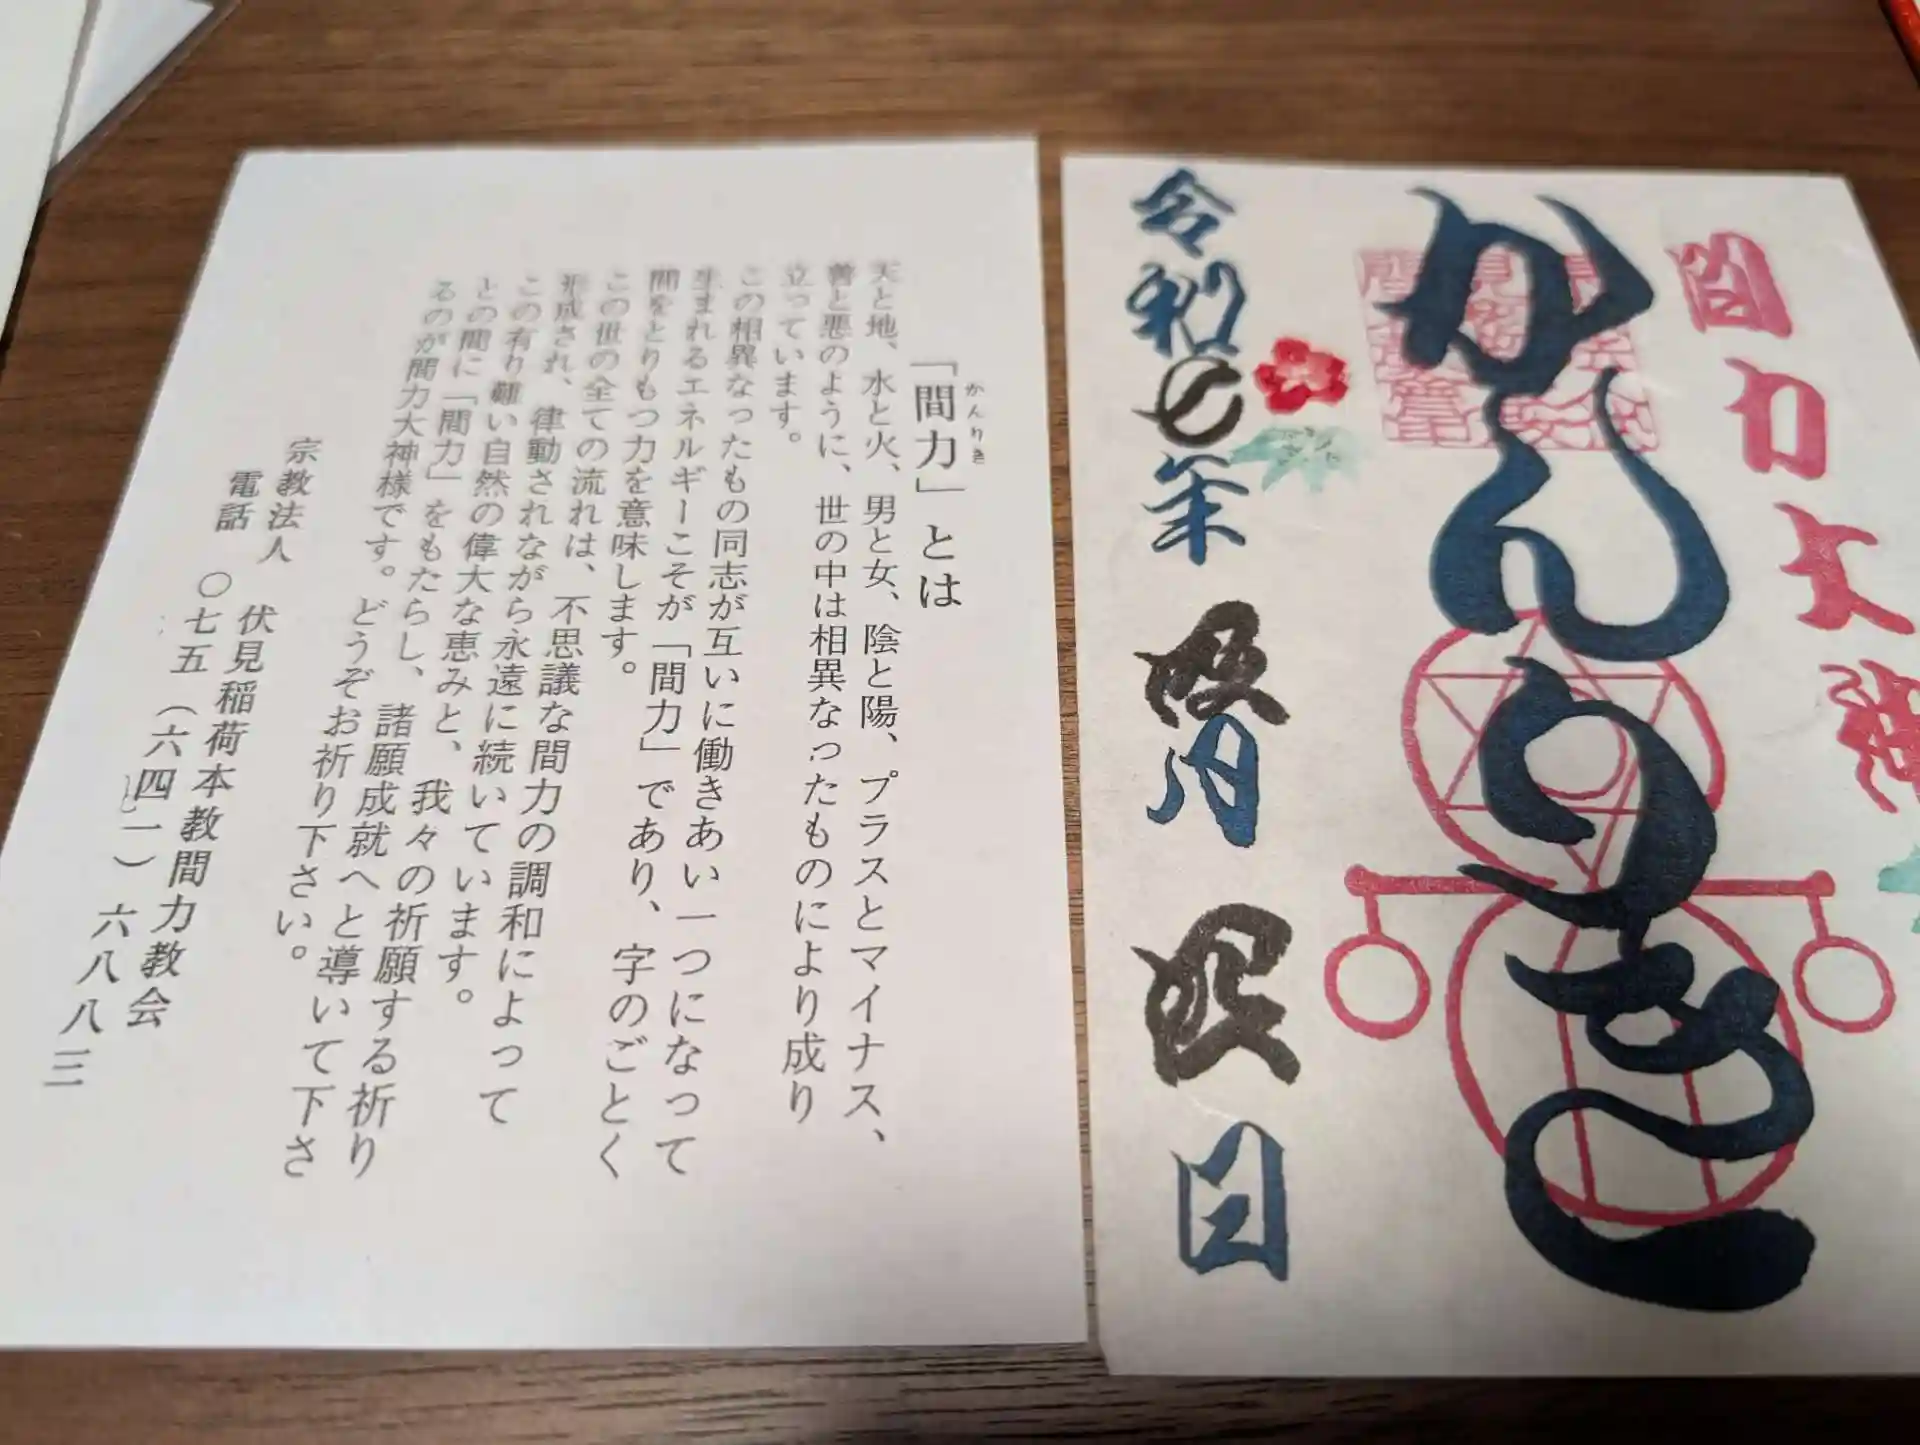 「間力」とは
かんりき
天と地、水と火、男と女、陰と陽、プラスとマイナス、
善と悪のように、世の中は相異なったものにより成り
立っています。
この相異なったもの同志が互いに働きあい一つになって
生まれるエネルギーこそが「間力」であり、字のごとく
間をとりもつ力を意味します。
この世の全ての流れは、不思議な間力の調和によって
形成され、律動されながら永遠に続いています。
この有り難い自然の偉大な恵みと、我々の祈願する祈り
との間に「間力」をもたらし、諸願成就へと導いて下さ
るのが間力大神様です。どうぞお祈り下さい。
宗教法人 伏見稲荷本教間力教会
電話 〇七五(六四一)六八八三
間力大神
かんりき
令和七年
月
日